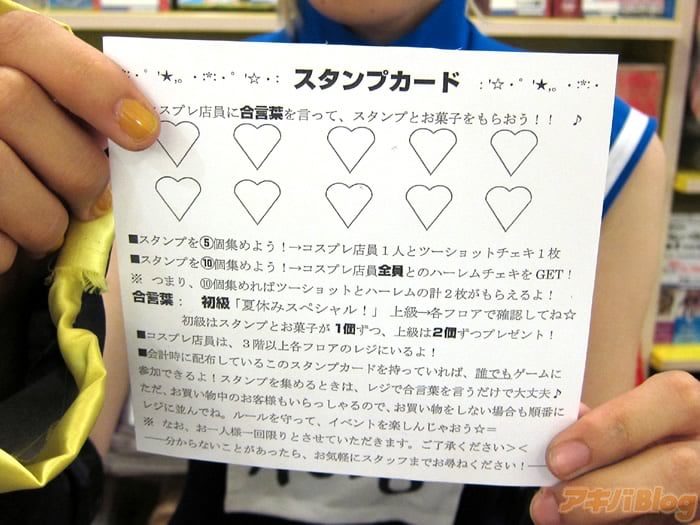 ･:*:･ﾟ'★,｡･:*:･ﾟ'☆･: スタンプカード :'☆･ﾟ'★,｡･:*:･
スプレ店員に合言葉を言って、スタンプとお菓子をもらおう！！ ♪
■スタンプを⑤個集めよう！→コスプレ店員１人とツーショットチェキ１枚
■スタンプを⑩個集めよう！→コスプレ店員全員とのハーレムチェキをGET！
※ つまり、⑩個集めればツーショットとハーレムの計２枚がもらえるよ！
合言葉： 初級「夏休みスペシャル！」 上級→各フロアで確認してね☆
初級はスタンプとお菓子が1個ずつ、上級は2個ずつプレゼント！
■コスプレ店員は、３階以上各フロアのレジにいるよ！
■会計時に配布しているこのスタンプカードを持っていれば、誰でもゲームに
参加できるよ！スタンプを集めるときは、レジで合言葉を言うだけで大丈夫♪
ただ、お買い物中のお客様もいらっしゃるので、お買い物をしない場合も順番に
レジに並んでね。ルールを守って、イベントを楽しんじゃおう☆＝
※ なお、お一人様一回限りとさせていただきます。ご了承ください＞＜
――分からないことがあったら、お気軽にスタッフまでお尋ねください！――
アキバBlog